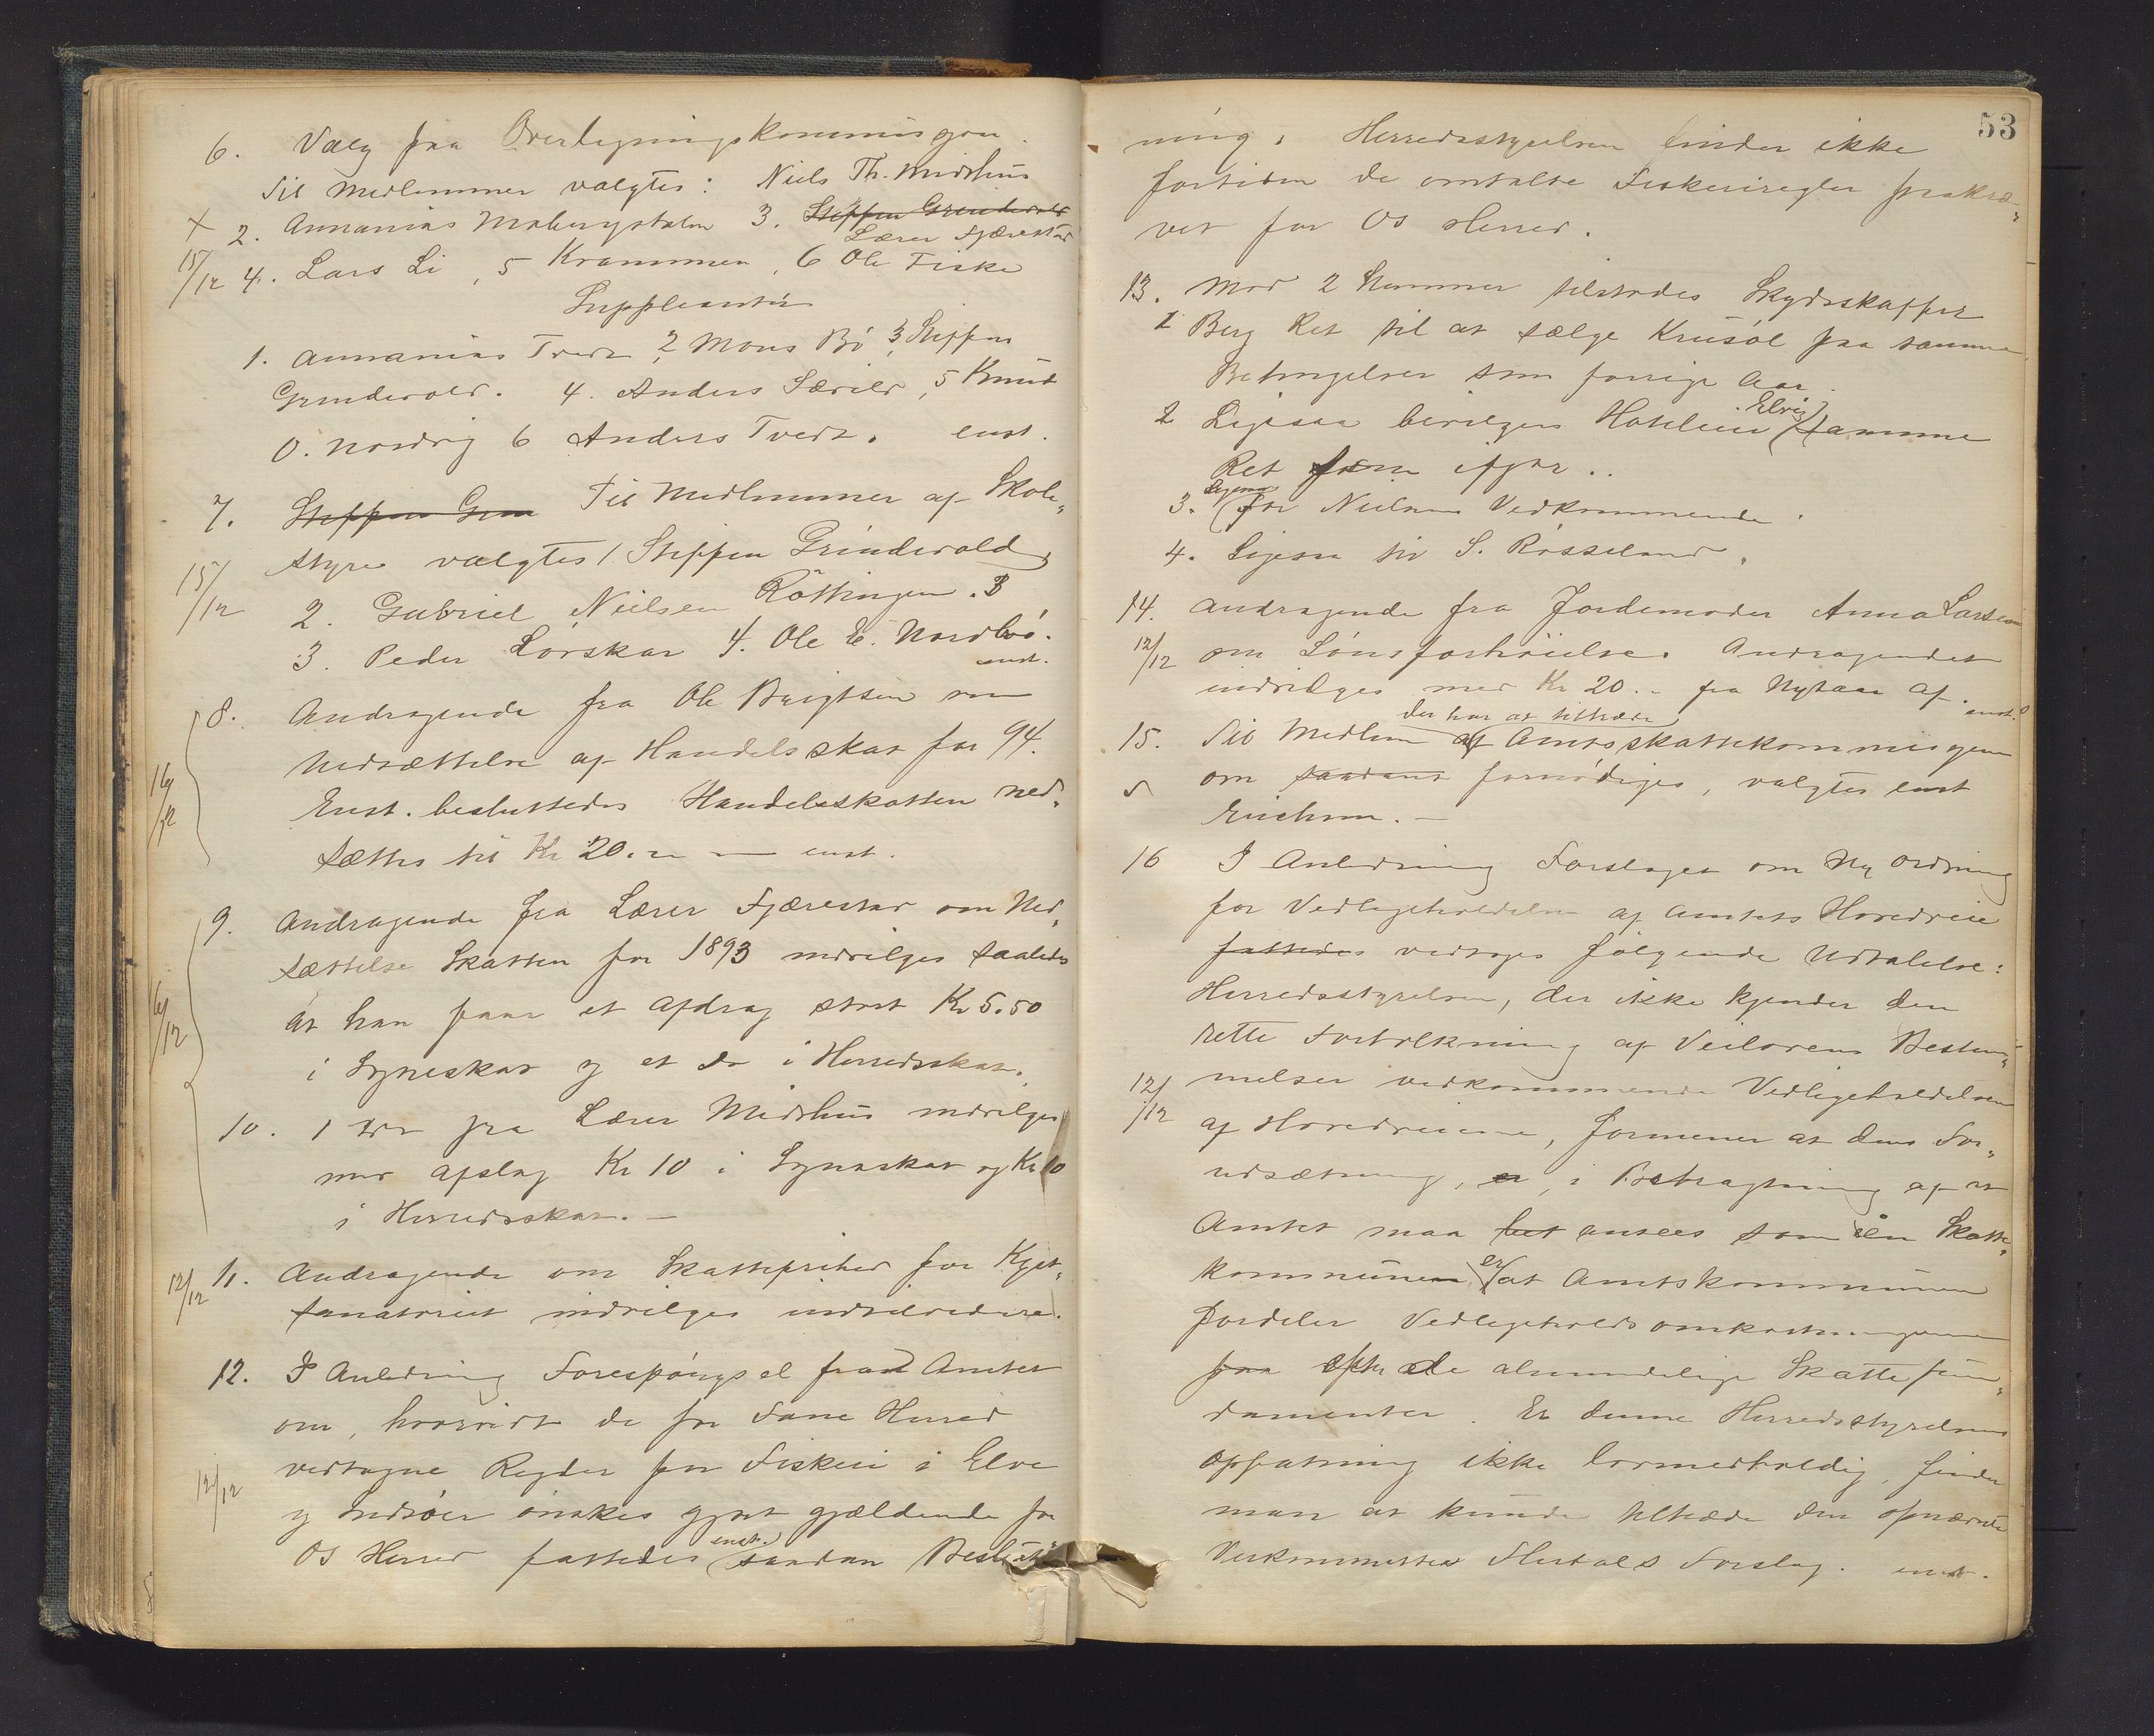 6. Valg paa Overligningskommissjon.
Til Medlemmer valgtes: Niels Th. Midthus
X 2. Annanias Moberg 3. Steffen Grindevold
Lærer Fjærestad
15/12 4. Lars Li, 5 Krammen, 6 Ole Fiske
Suppleanter
1. Annanias Tvedt 2 Mons Bö 3 Steffen
Grindevold. 4. Anders Særvold, 5 Knut
O. Nordvig 6 Anders Tvedt. enst.
7. Steffen Grin Til Medlemmer af Skole-
styre valgtes 1 Steffen Grindevold
15/12 2. Gabriel Nielsen Röttingen. 3
3. Peder Lörskar 4. Ole E. Nordbö.
enst.
8. Andragende fra Ole Brigtsen om
Nedsættelse af Handelsskat for 94.
16/12 Enst. besluttedes Handelsskatten ned-
sættes til Kr 20.- — enst.
9. Andragende fra Lærer Fjærestad om Ned-
sættelse Skatten for 1893 indvilges saaledes
16/12 At han faar et Afdrag stort Kr 5.50
i Lyneskat og et do i Herredsskat.
10. 1 Do fra Lærer Midthus indvilges
med afslag Kr 10 i Lyneskat og Kr 10
i Herredsskat. —
12/12 11. Andragende om Skattefrihed for Kyst-
sanatoriet indvilges indtilvidere.
12. I Anledning Forespörgsel fra Amtet
om, hvorvidt de for Fane Herred
vedtagne Regler for Fiskeri i Elve
12/12 og Indsöer önskes gjort gjældende for
Os Herred fattedes enst. saadan Beslut-
53
ning: Herredsstyrelsen finder ikke
fortiden de omtalte Fiskeriregler paakræ-
vet for Os Herred.
13. Mod 2 Stemmer tilstodes Skydsskaffer
1 Berg Ret til at sælge Krusöl paa samme
Betingelser som forrige Aar.
2 Ligesaa bevilges Hotelleier Elvig samme
Ret som ifjor..
3. Ligesaa for Nielsens Vedkommende.
4. Ligesaa til S. Rösseland.
14. Andragende fra Jordemoder Anna Larsen
12/12 om Lönsforhöielse. Andragendet
indvilges med Kr 20.- fra Nytaar af. enst.
der har at tiltræde
15. Til Medlem af Amtsskattekommisjonen
om saadant fornödiges, valgtes enst
Erichsen. —
16 I Anledning Forslaget om Ny Ordning
for Vedligeholdelse af Amtets Hovedveie
fattedes vedtoges fölgende Udtalelse:
Herredsstyrelsen, der ikke kjender den
rette Fortolkning af Veilovens Bestem-
12/12 melser vedkommende Vedligeholdelsen
af Hovedveiene, formener at dens For-
udsætning, er, i Betragtning af at
Amtet maa het ansees som én Skatte-
kommune er at Amtskommunen
fordeler Vedligeholdsomkostningerne
paa efter de almindelige Skattefun-
damenter. Er denne Herredsstyrelsens
Opfatning ikke lovmedholdig, finder
man at kunde tiltræde den opnævnte
Veikommites Flertals Forslag. enst.